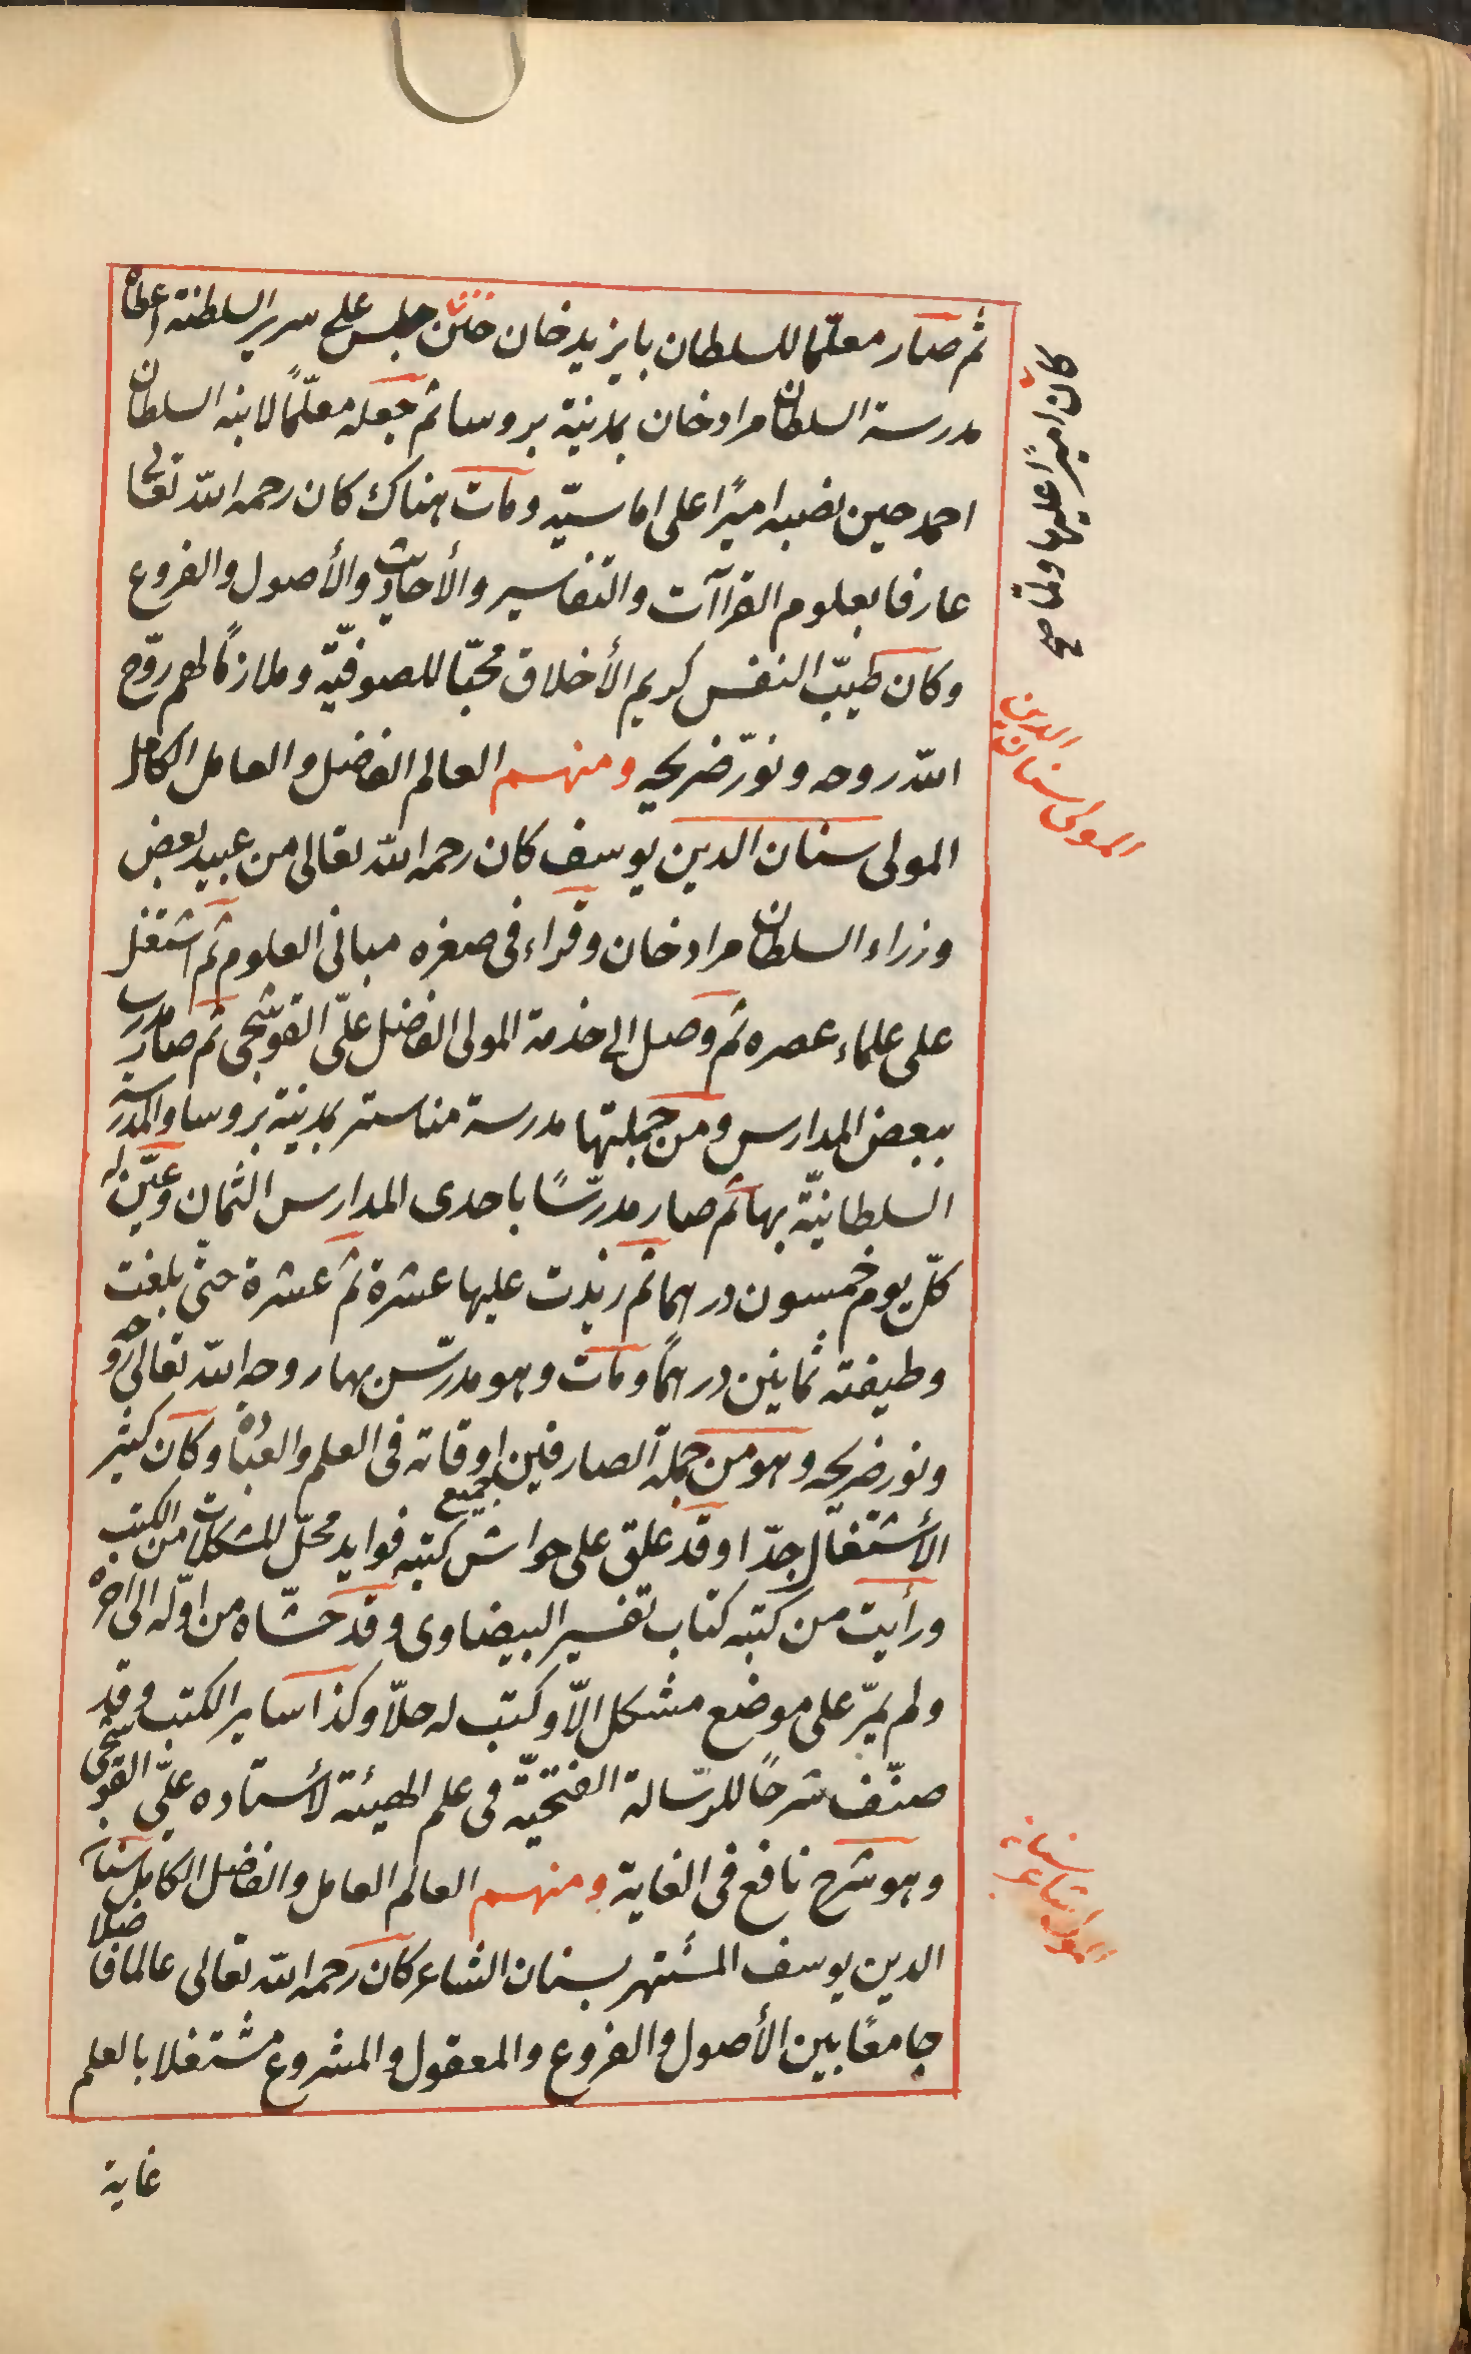 ثم صار معلّما للسلطان بايزيد خان حين جلس على سرير السلطنة اعطاه
مدرسة السلطان مراد خان بمدينة بروسا ثم جعله معلّمًا لابنه السلطان
احمد حين نصبه اميرًا على اماسيّه ومات هناك كان رحمه الله تعالى
عارفا بعلوم القراآت والتفاسير والأحاديث والأصول والفروع
وكان طيّب النفس كريم الأخلاق محبّا للصوفيّه وملازمًا لهم روّح
الله روحه ونوّر ضريحه ومنهم العالم الفاضل والعامل الكامل
المولى سنان الدين يوسف كان رحمه الله تعالى من عبيد بعض
وزراء السلطان مراد خان وقراء فى صغره مبانى العلوم ثم اشتغل
على علماء عصره ثم وصل الى خدمة المولى الفاضل علّى القوشجى ثم صار مدرسا
ببعض المدارس ومن جملتها مدرسة مناستر بمدينة بروسا والمدرسة
السلطانيّة بها ثم صار مدرّسًا باحدى المدارس الثمان وعيّن له
كلّ يوم خمسون درهما ثم زيدت عليها عشرة ثم عشرة حتى بلغت
وظيفته ثمانين درهمًا ومات وهو مدرّس بها روحه الله تعالى روحه
ونور ضريحه وهو من جملة الصارفين اوقاته فى العلم والعبادة وكان كثير
الأشتغال جدّا وقد علق على حواش جميع كتبه فوايد محلّ للمشكلات من الكتب
ورأيت من كتبه كتاب تفسير البيضاوى وقد حشّاه من اوّله الى اخره
ولم يمرّ على موضع مشكل الاّ وكتب له حلاّ وكذا ساير الكتب وقد
صنّف شرحًا للرّسالة الفتحيّة فى علم الهيئة لأستاده علّى القوشجى
وهو شرح نافع فى الغاية ومنهم العالم العامل والفاضل الكامل سنان
الدين يوسف المشتهر بسنان الشاعر كان رحمه الله تعالى عالما فاضلا
جامعًا بين الأصول والفروع والمعقول والمشروع مشتغلا بالعلم
غاية
كان اميرًا عليها ولما صح
المولى سنان الدين
المولى سنان شاعر